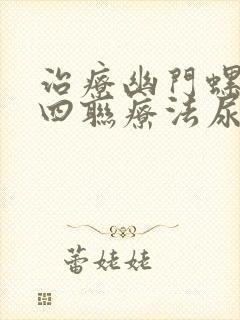 治療幽門螺
四聯療法尿
蕾姥姥